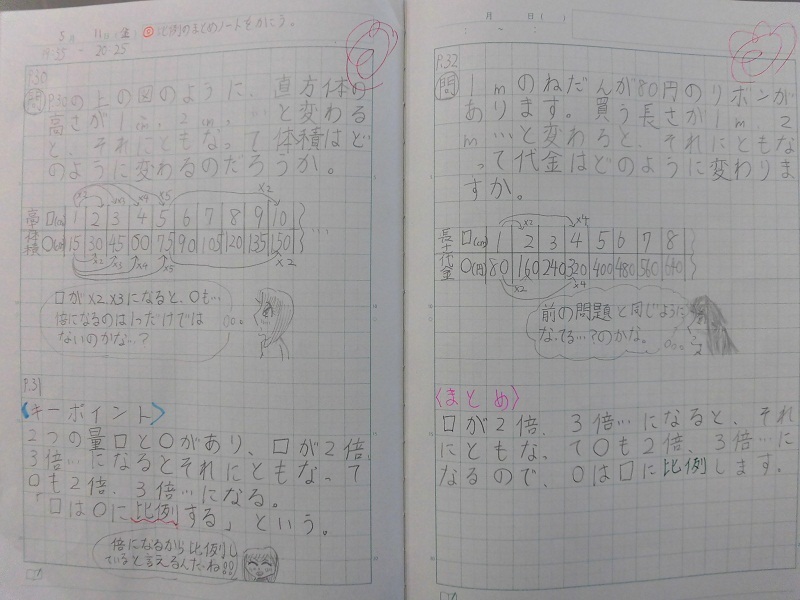 5月 11日(金) ⑤比例のまとめノートをかこう。
19:55 ~ 20:25
P.30
問 P30の上の図のように、直方体の
高さが1cm、2cm、…と変わる
と、それにともなって体積はど
のように変わるのだろうか。
×2
高さ □(cm) 1 2 3 4 5 6 7 8 9 10 …
体積 ○(cm³) 15 30 45 60 75 90 105 120 135 150
×2 ×3 ×4 ×5 ×2
□が×2 ×3になると、○も…
倍になるのは1つだけでは
ないのかな…?
P.31
〈キーポイント〉
2つの量□と○があり、□が2倍、
3倍…になるとそれにともなって
○も2倍、3倍…になる。
「□は○に比例する」という。
倍になるから比例し
ていると言えるんだね!!
月 日( )
P.32
問 1mのねだんが80円のリボンが
あります。買う長さが1m、2
m…と変わると、それにともな
って代金はどのように変わりま
すか。
×2 ×4
長さ □(m) 1 2 3 4 5 6 7 8
代金 ○(円) 80 160 240 320 400 480 560 640
×2 ×4
前の問題と同じように
なってる…?のかな。
〈まとめ〉
□が2倍、3倍…になると、それ
にともなって○も2倍、3倍…に
なるので、○は□に比例します。